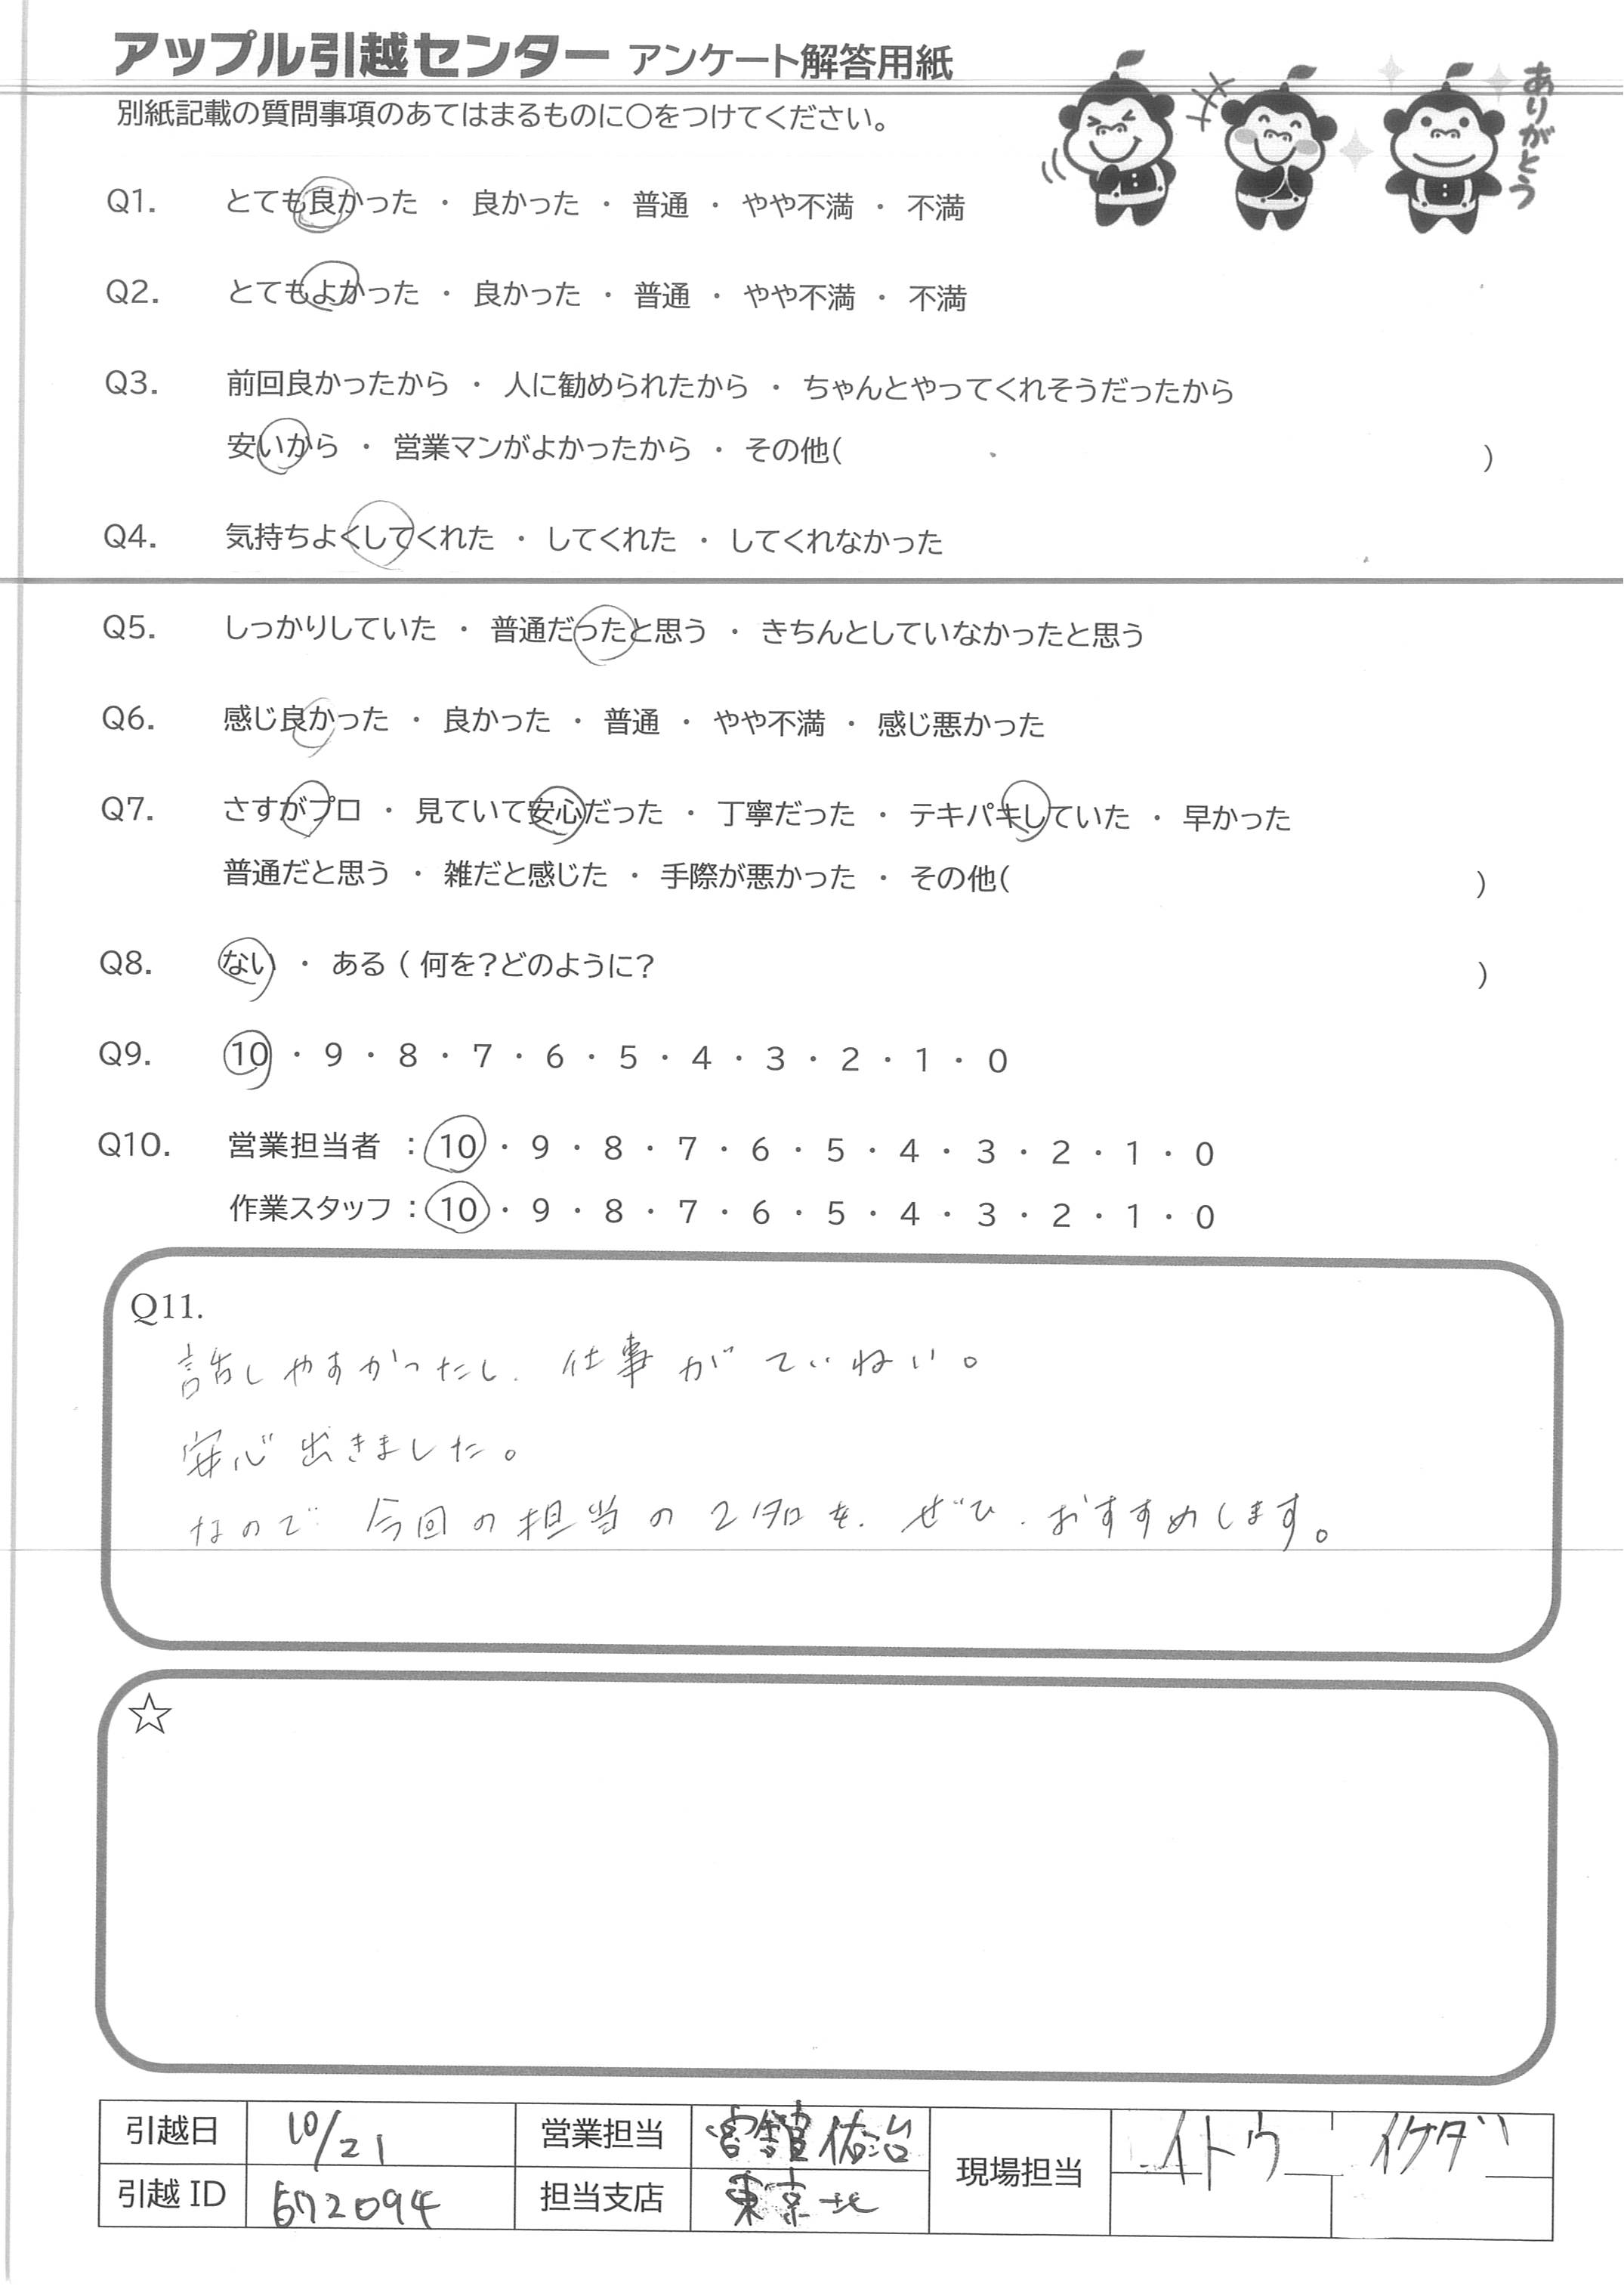 アップル引越センター アンケート解答用紙
別紙記載の質問事項のあてはまるものに〇をつけてください。
ありがとう
Q1. とても良かった ・ 良かった ・ 普通 ・ やや不満 ・ 不満
Q2. とてもよかった ・ 良かった ・ 普通 ・ やや不満 ・ 不満
Q3. 前回良かったから ・ 人に勧められたから ・ ちゃんとやってくれそうだったから
安いから ・ 営業マンがよかったから ・ その他( )
Q4. 気持ちよくしてくれた ・ してくれた ・ してくれなかった
Q5. しっかりしていた ・ 普通だったと思う ・ きちんとしていなかったと思う
Q6. 感じ良かった ・ 良かった ・ 普通 ・ やや不満 ・ 感じ悪かった
Q7. さすがプロ ・ 見ていて安心だった ・ 丁寧だった ・ テキパキしていた ・ 早かった
普通だと思う ・ 雑だと感じた ・ 手際が悪かった ・ その他( )
Q8. ない ・ ある ( 何を?どのように? )
Q9. 10 ・ 9 ・ 8 ・ 7 ・ 6 ・ 5 ・ 4 ・ 3 ・ 2 ・ 1 ・ 0
Q10. 営業担当者 : 10 ・ 9 ・ 8 ・ 7 ・ 6 ・ 5 ・ 4 ・ 3 ・ 2 ・ 1 ・ 0
作業スタッフ : 10 ・ 9 ・ 8 ・ 7 ・ 6 ・ 5 ・ 4 ・ 3 ・ 2 ・ 1 ・ 0
Q11.
話しやすかったし、仕事がていねい。
安心出きました。
なので 今回の担当の2名を、ぜひ、おすすめします。
☆
引越日 10/21 営業担当 佑治 現場担当 イトウ イケダ
引越 ID 572094 担当支店 東京北